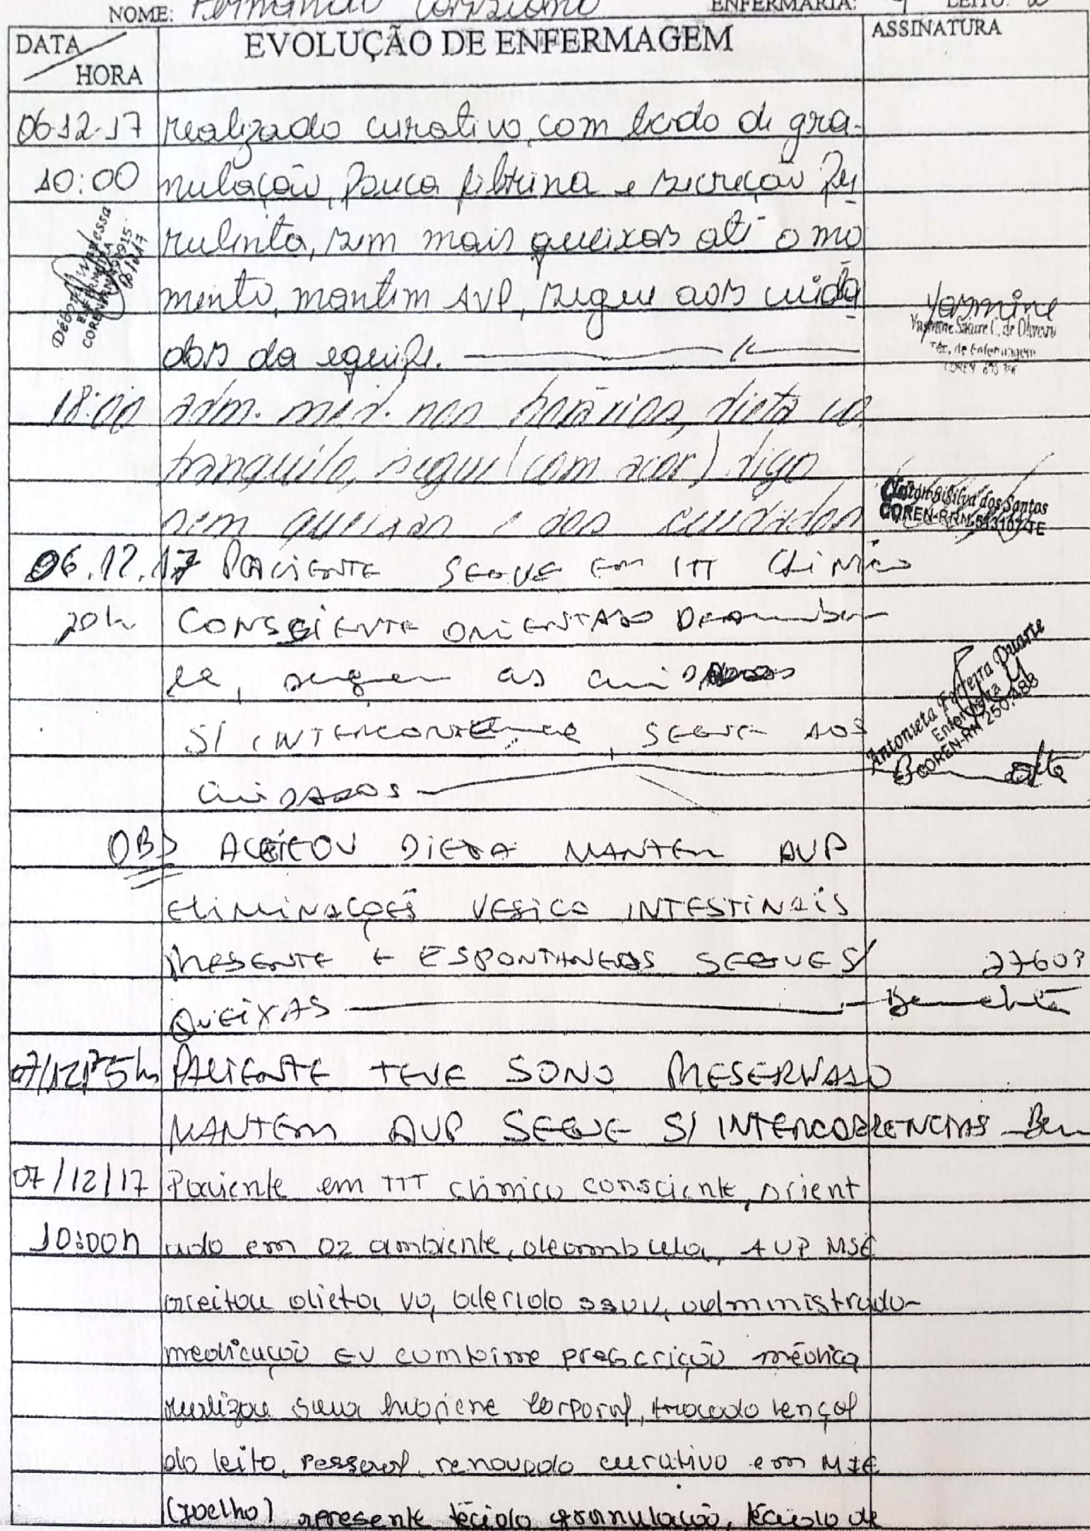 NOME: Fernando ENFERMARIA: LEITO: 2
DATA HORA EVOLUÇÃO DE ENFERMAGEM ASSINATURA
06.12.17 realizado curativo, com tecido de gra-
10:00 nulação, pouca fibrina e secreção pu
rulenta, sem mais queixas até o mo
mento, mantem AVP, segue aos cuida
dos da equipe.
Yasmine
Yasmine C. de Oliveira
Téc. de Enfermagem
COREN
18:00 adm. med. nos horários, dieta vo
tranquilo, segue (com acor) digo
sem queixas e aos cuidados
Silva dos Santos
COREN-RN 513107-TE
06.12.17 PACIENTE SEGUE EM TTT CLINICO
20h CONSCIENTE ORIENTADO DEAMBU
LA, segue as cuidados
S/ INTERCORRENCIA, SEGUE AOS
CUIDADOS
Antonieta Ferreira Duarte
Enfermeira
COREN-RN 250.488
OBS ACEITOU DIETA MANTEM AVP
ELIMINAÇOES VESICO INTESTINAIS
PRESENTE E ESPONTANEAS SEGUE S/ 27603
QUEIXAS
07/12/17 5hs PACIENTE TEVE SONO PRESERVADO
MANTEM AVP SEGUE S/ INTERCORRENCIAS
07/12/17 Paciente em TTT clinico consciente, orient
10:00h ado em O2 ambiente, deambula, AVP MSE
aceitou dieta VO, aferido SSVV, administrado
medicação EV comforme prescrição médica
realizou sua higiene corporal, trocado lençol
do leito, renovado curativo em MIE
(joelho) apresente tecido granulação, tecido de